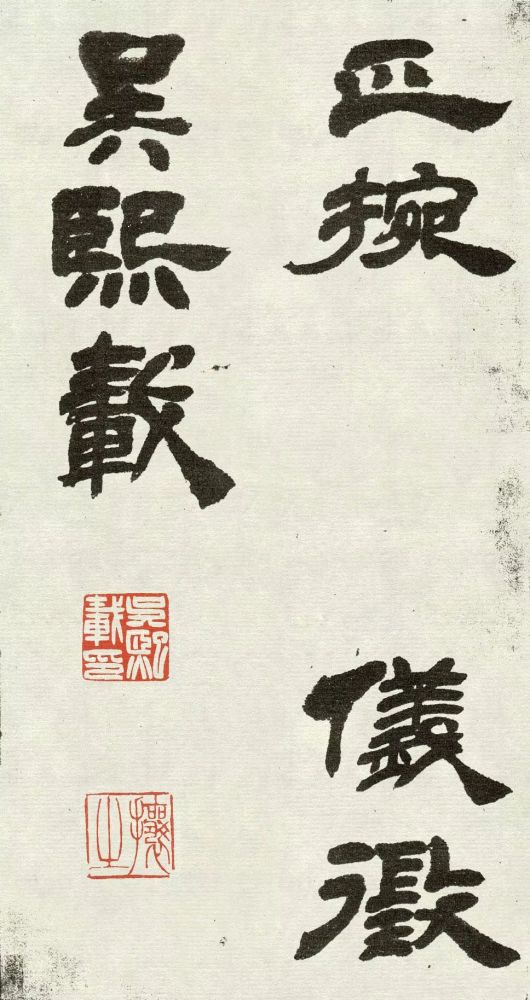 捥
儀徵
吳熙載
吳熙
載印
攘之